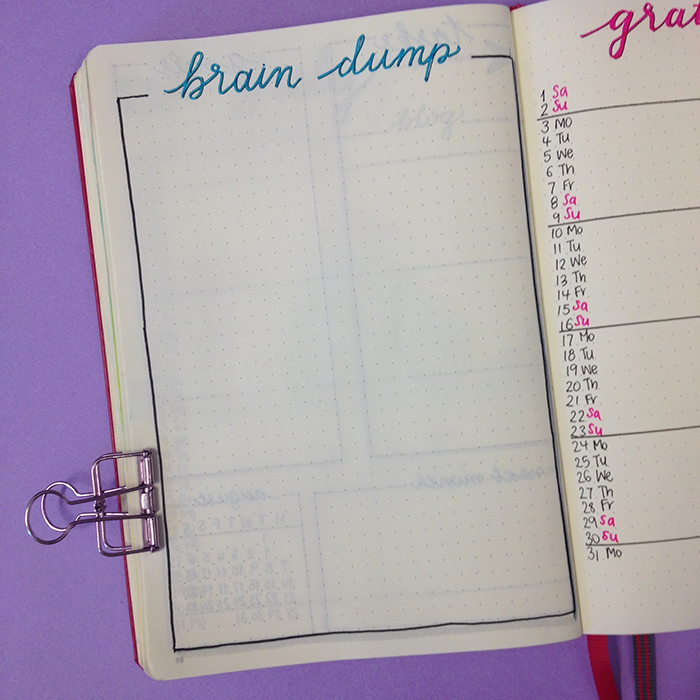 brain dump
grat
1 Sa
2 Su
3 Mo
4 Tu
5 We
6 Th
7 Fr
8 Sa
9 Su
10 Mo
11 Tu
12 We
13 Th
14 Fr
15 Sa
16 Su
17 Mo
18 Tu
19 We
20 Th
21 Fr
22 Sa
23 Su
24 Mo
25 Tu
26 We
27 Th
28 Fr
29 Sa
30 Su
31 Mo